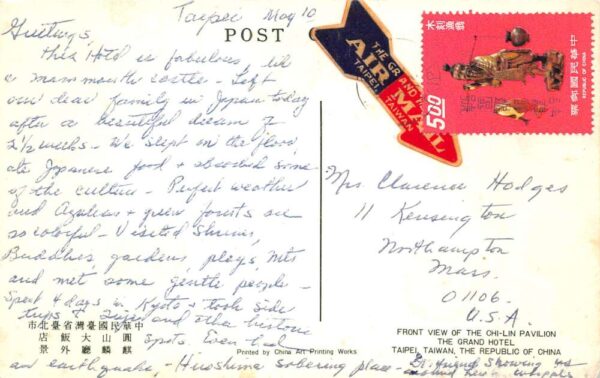 Taipei May 10
Greetings,
This Hotel is fabulous, like
a mammouth castle - Left
our dear family in Japan today
after a beautiful dream of
2 1/2 weeks - We slept on the floor,
ate Japanese food & absorbed some
of the culture - Perfect weather
and Azaleas & green forests are
so colorful - Visited Shrines,
Buddhas, gardens, plays, Mts
and met some gentle people -
Spent 4 days in Kyoto & took side
trips & and other historic
spots. Even had
an earthquake, - Hiroshima sobering place -
POST
THE GRAND HOTEL
AIR MAIL
TAIPEI TAIWAN
中華民國郵票
REPUBLIC OF CHINA
5.00
Mrs. Clarence Hodges
11 Kensington
Northampton
Mass.
01106.
U.S.A.
市北臺省灣臺國民華中
店飯大山圓
景外廳麟麒
Printed by China Art Printing Works
FRONT VIEW OF THE CHI-LIN PAVILION
THE GRAND HOTEL
TAIPEI, TAIWAN, THE REPUBLIC OF CHINA
friend showing us
around here